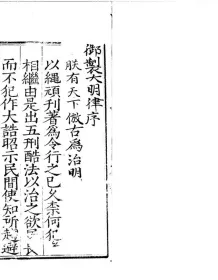 御製大明律序
朕有天下倣古為治明
以繩頑刊著為令行之已久柰何犯
相繼由是出五刑酷法以治之欲民畏
而不犯作大誥昭示民間使知所趨避